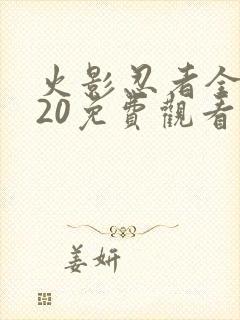 火影忍者全
20免費觀看
姜妍